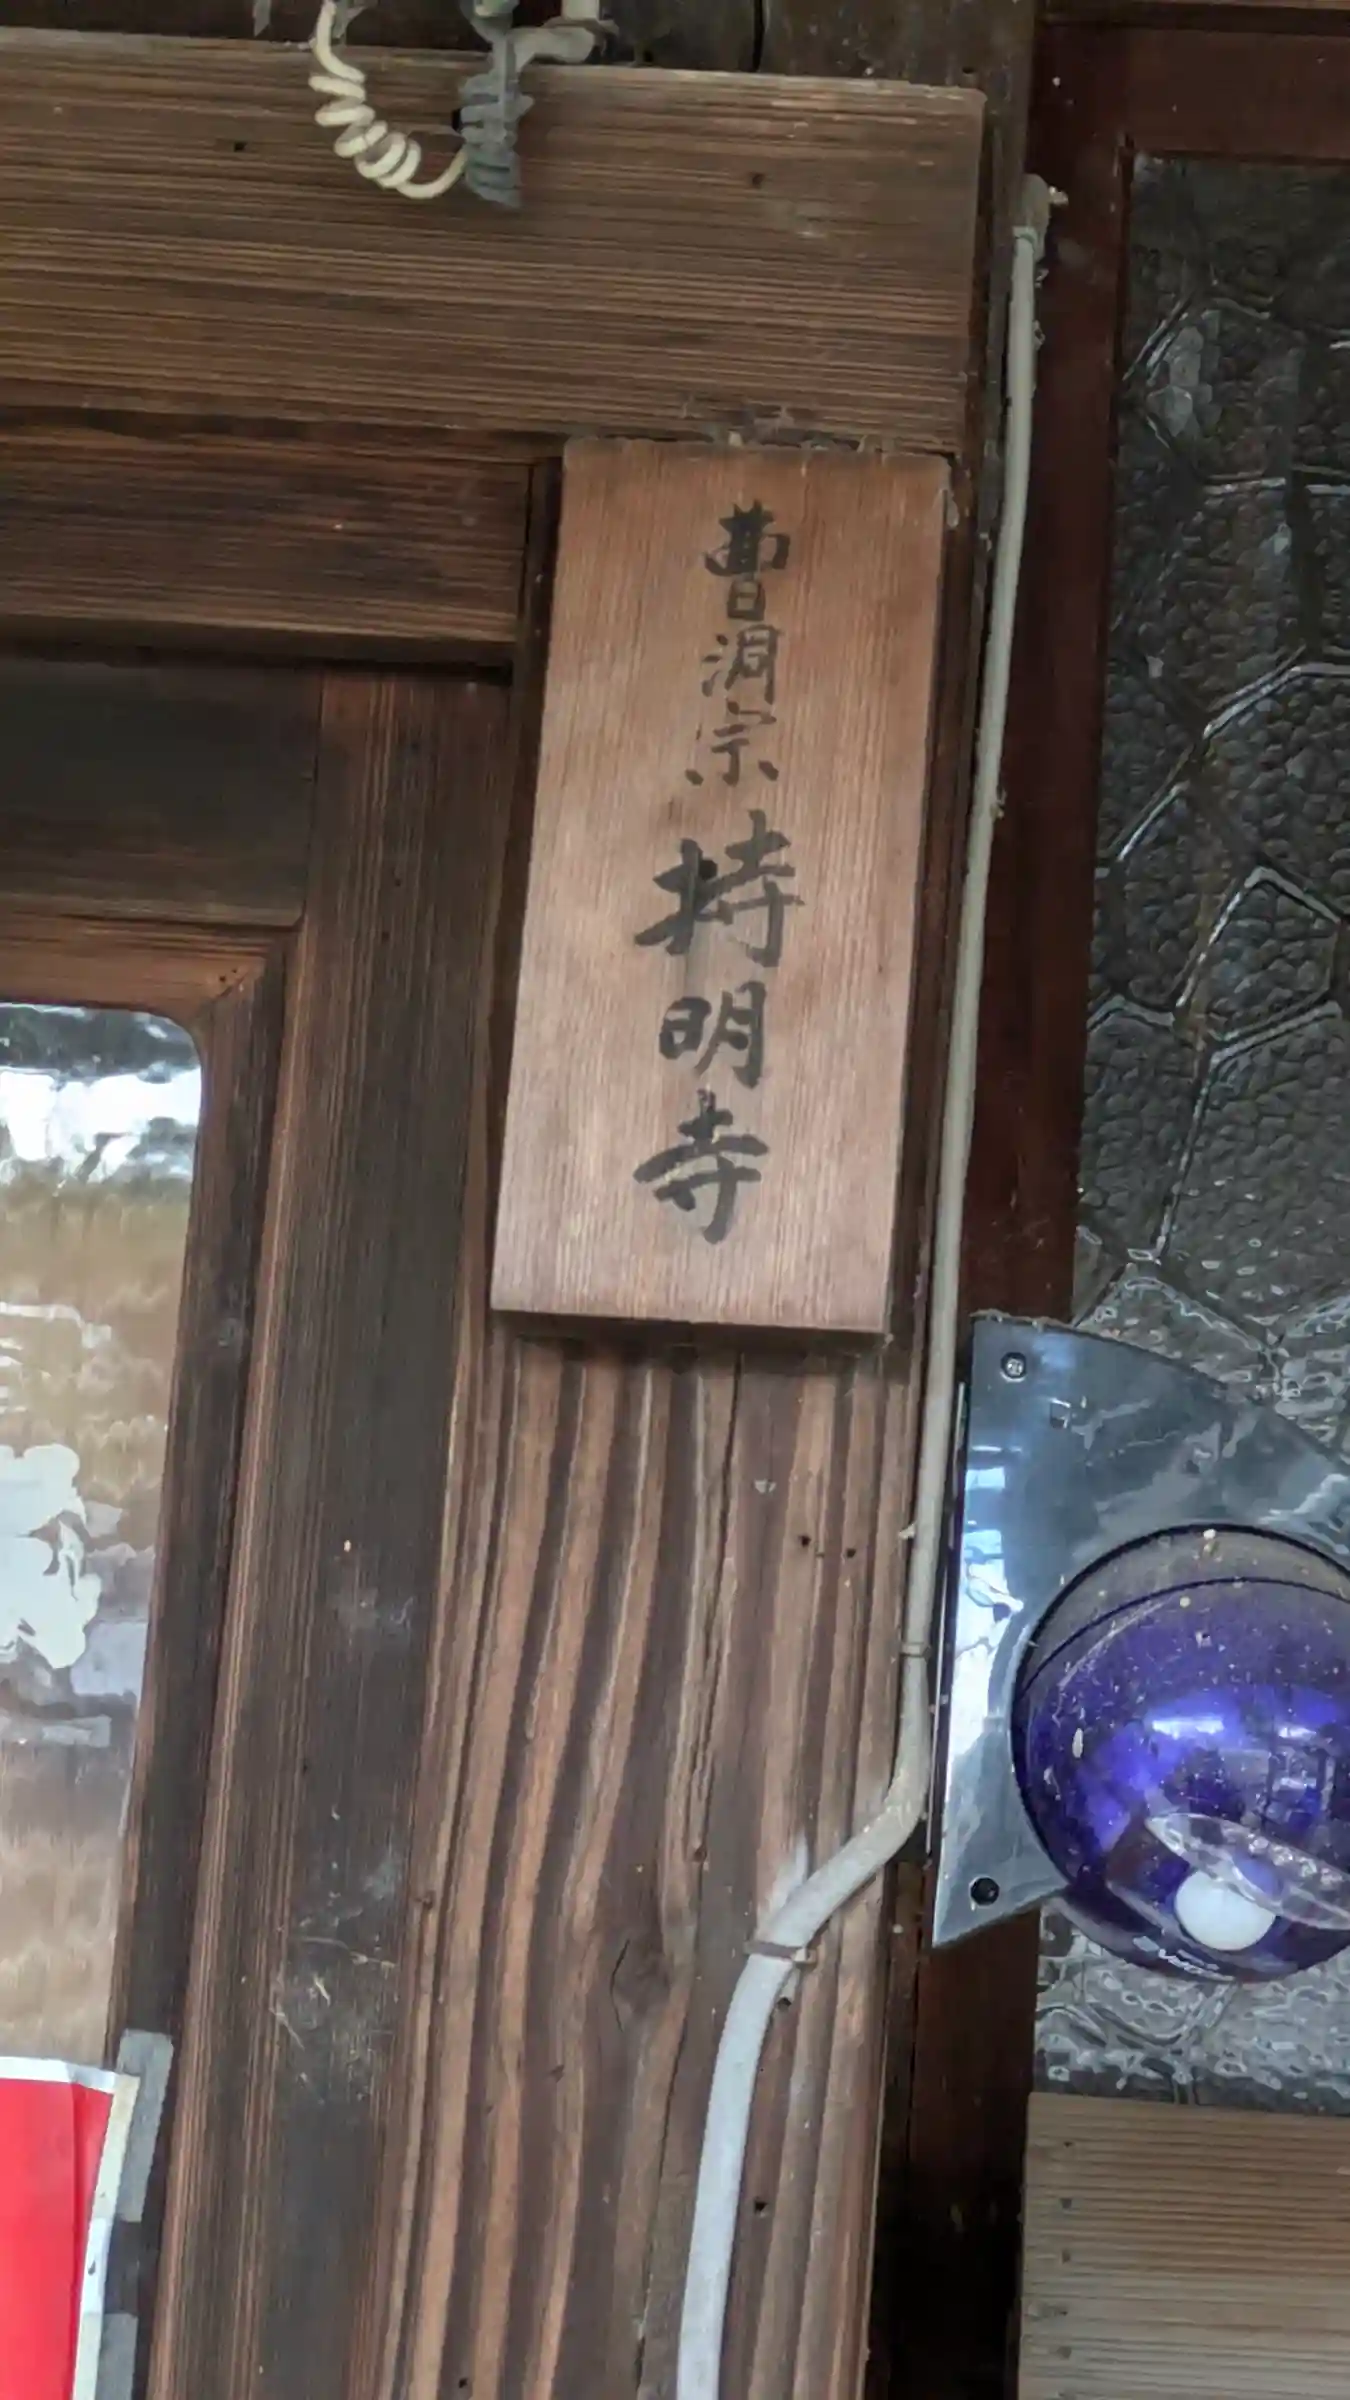 曹洞宗 持明寺